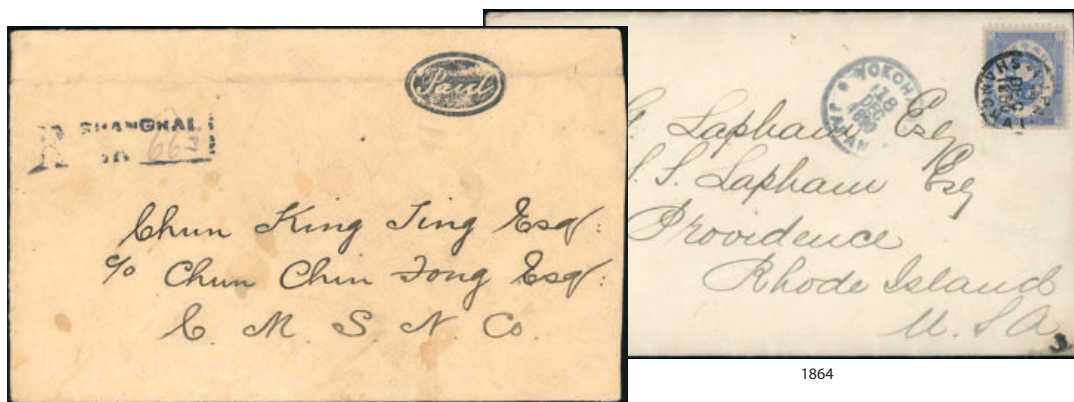 Paid
R SHANGHAI
No 667
Chun King Ting Esq:
c/o Chun Chin Fong Esq:
C. M. S. N. Co.
YOKOHAMA
18
DEC
1890
JAPAN
SHANGHAI
DEC
Lapham Esq
S. S. Lapham Esq
Providence
Rhode Island
U. S. A.
1864